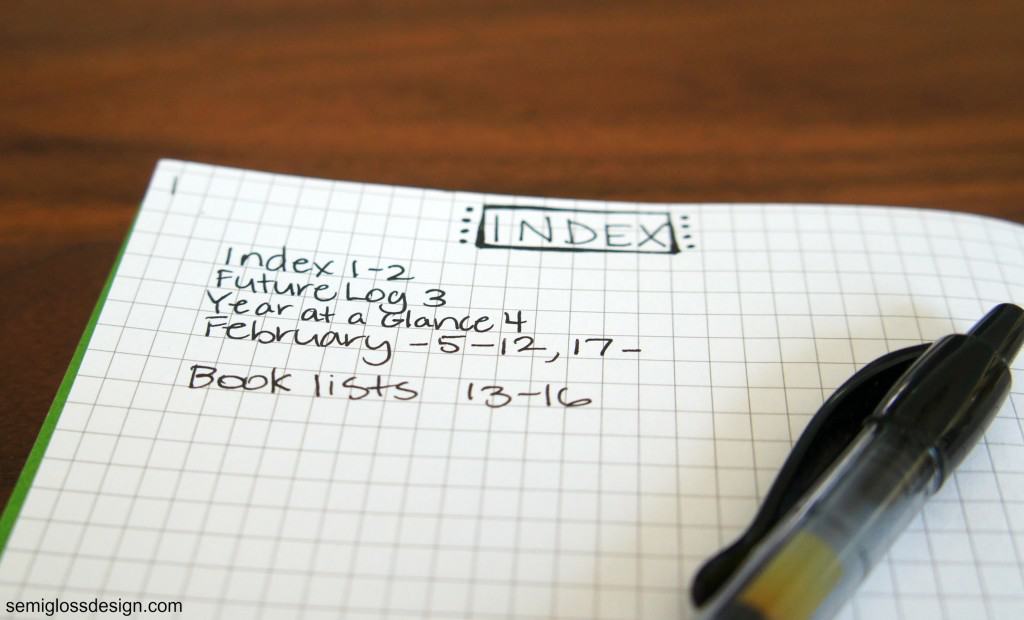 1
INDEX
Index 1-2
Future Log 3
Year at a Glance 4
February - 5-12, 17 -
Book lists 13-16
semiglossdesign.com